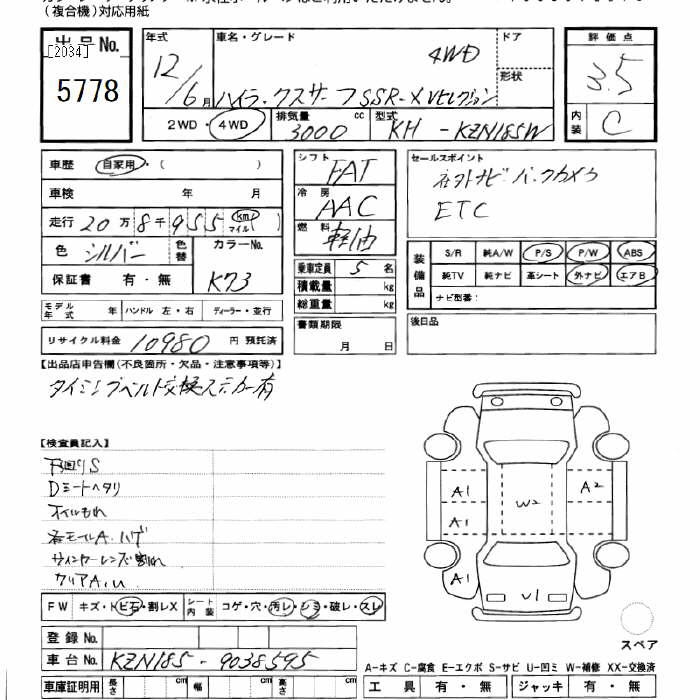 (複合機)対応用紙
出品No.
[2034]
5778
年式
12/6月
車名・グレード
4WD
ハイラックスサーフSSR-X Vセレクション
ドア
形状
2WD・4WD
排気量
3000 cc
型式
KH - KZN185W
評価点
3.5
内装
C
車歴 自家用・( )
車検 年 月
走行 20万8千955 km マイル( )
色 シルバー
色替
カラーNo.
K73
保証書 有・無
モデル年式
ハンドル 左・右
ディーラー・並行
リサイクル料金 10980 円 預託済
シフト FAT
冷房 AAC
燃料 軽油
乗車定員 5 名
積載量 kg
総重量 kg
書類期限
月 日
セールスポイント
社外ナビ バックカメラ
ETC
装備品
S/R 純A/W P/S P/W ABS
純TV 純ナビ 革シート 外ナビ エアB
ナビ型番:
後日品
【出品店申告欄(不良箇所・欠品・注意事項等)】
タイミングベルト交換ステッカー有
【検査員記入】
下回りS
Dシートヘタリ
オイルもれ
各モールA.ハゲ
ウィンカーレンズ割れ
クリアA.U
A1
A1
A1
W2
A2
U1
スペア
FW キズ・トビ石・割レX
シート内装 コゲ・穴・汚レ・シミ・破レ・スレ
登録No.
車台No. KZN185 - 9038595
車庫証明用 長さ cm 幅 cm 高さ cm
A-キズ C-腐食 E-エクボ S-サビ U-凹ミ W-補修 XX-交換済
工具 有・無 ジャッキ 有・無